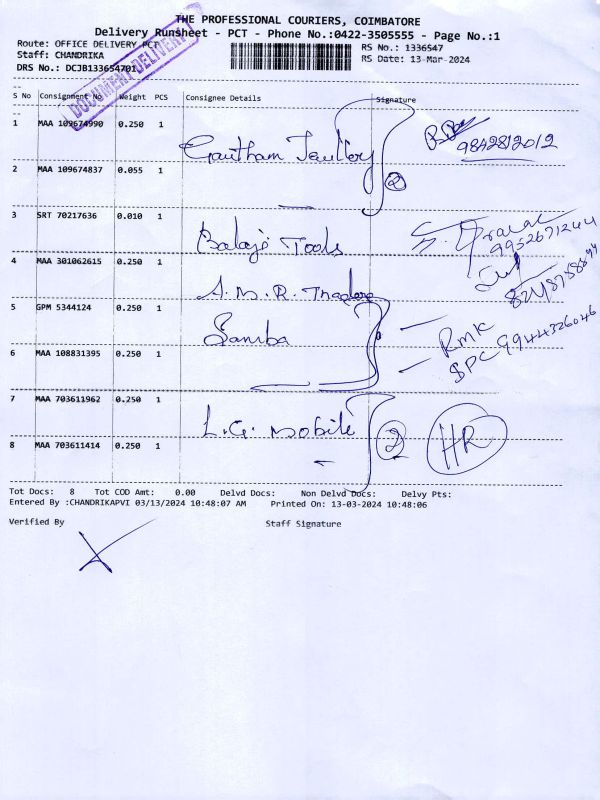 THE PROFESSIONAL COURIERS, COIMBATORE
Delivery Runsheet - PCT - Phone No.:0422-3505555 - Page No.:1
Route: OFFICE DELIVERY PCT
RS No.: 1336547
Staff: CHANDRIKA
RS Date: 13-Mar-2024
DRS No.: DCJB133654701
DOCUMENT DELIVERY
S No Consignment No Weight PCS Consignee Details Signature
1 MAA 109674990 0.250 1
Gautham 9842812012
2 MAA 109674837 0.055 1
2
3 SRT 70217636 0.010 1
Balaji Tools 9952671244
4 MAA 301062615 0.250 1
A.M.R. Traders
5 GPM 5344124 0.250 1
Samba RMK
SPC 9944326046
6 MAA 108831395 0.250 1
7 MAA 703611962 0.250 1
L.G. Mobile 2 HR
8 MAA 703611414 0.250 1
Tot Docs: 8 Tot COD Amt: 0.00 Delvd Docs: Non Delvd Docs: Delvy Pts:
Entered By :CHANDRIKAPVI 03/13/2024 10:48:07 AM Printed On: 13-03-2024 10:48:06
Verified By Staff Signature